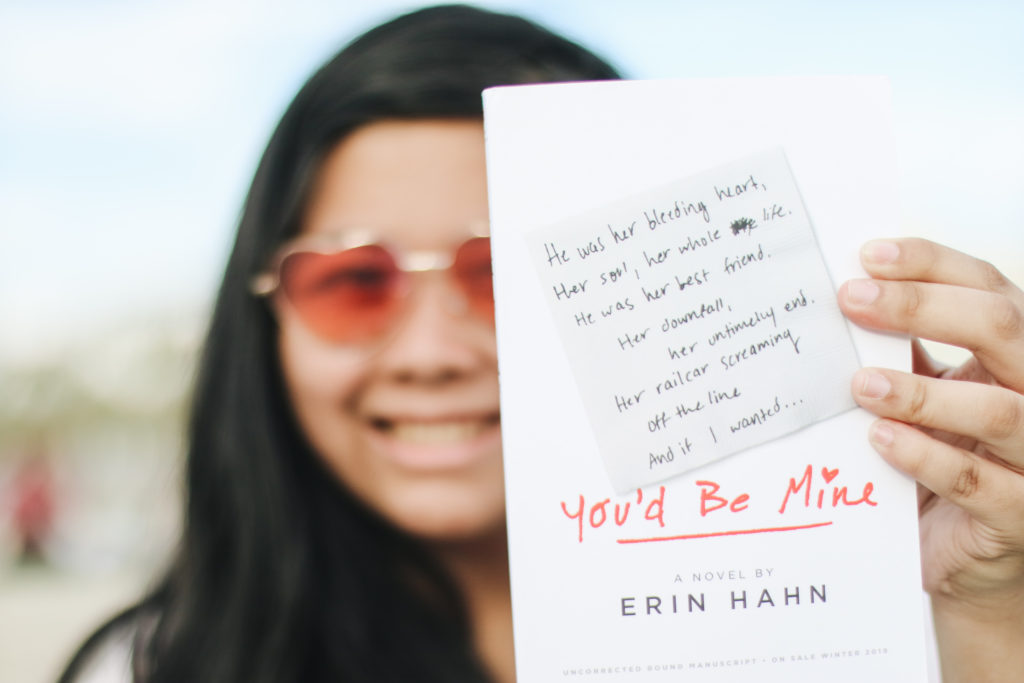 He was her bleeding heart,
Her soul, her whole life.
He was her best friend.
Her downfall,
her untimely end.
Her railcar screaming
off the line
And if I wanted...
You'd Be Mine
A NOVEL BY
ERIN HAHN
UNCORRECTED BOUND MANUSCRIPT • ON SALE WINTER 2019